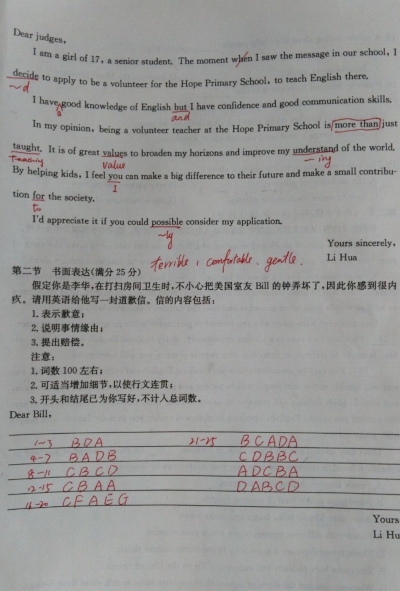 Dear judges,
I am a girl of 17, a senior student. The moment when I saw the message in our school, I
decide to apply to be a volunteer for the Hope Primary School, to teach English there.
~d
I have good knowledge of English but I have confidence and good communication skills.
a
and
In my opinion, being a volunteer teacher at the Hope Primary School is more than just
taught. It is of great values to broaden my horizons and improve my understand of the world.
Teaching value ~ing
By helping kids, I feel you can make a big difference to their future and make a small contribu-
I
tion for the society.
to
I'd appreciate it if you could possible consider my application.
~ly
Yours sincerely,
Li Hua
terrible, comfortable, gentle.
第二节 书面表达(满分 25 分)
假定你是李华,在打扫房间卫生时,不小心把美国室友 Bill 的钟弄坏了,因此你感到很内
疚。请用英语给他写一封道歉信。信的内容包括:
1.表示歉意;
2.说明事情缘由;
3.提出赔偿。
注意:
1.词数 100 左右;
2.可适当增加细节,以使行文连贯;
3.开头和结尾已为你写好,不计入总词数。
Dear Bill,
1-3 BDA 21-25 BCADA
4-7 BADB CDBBC
8-11 CBCD ADCBA
12-15 CBAA DABCD
16-20 CFAEG
Yours
Li Hu